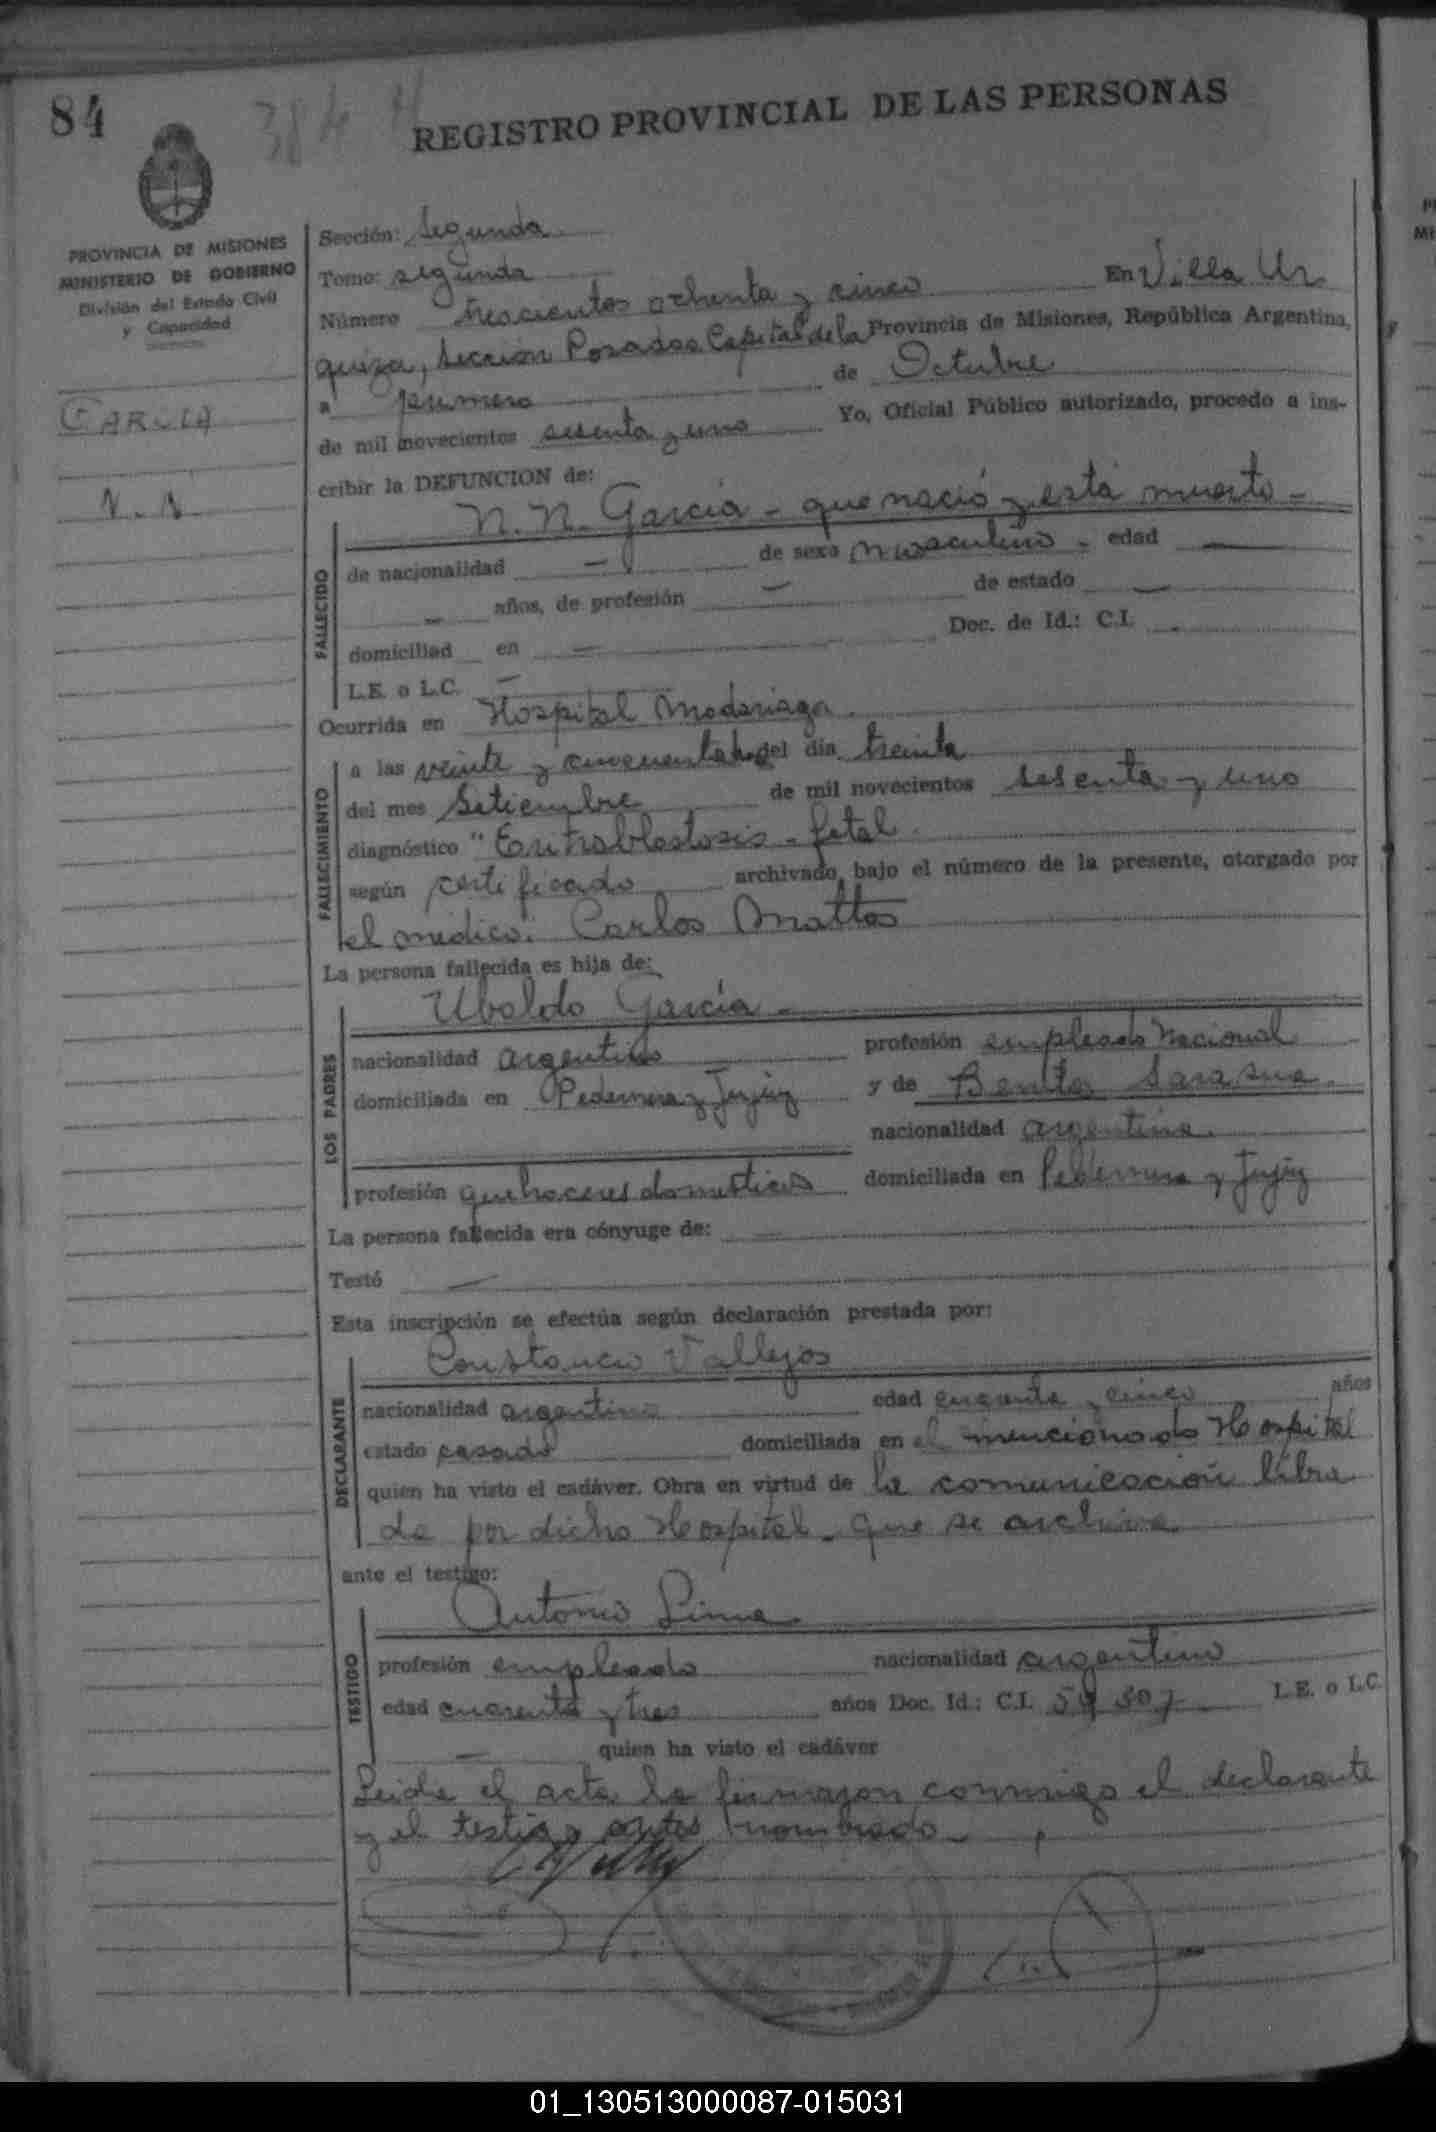 84
384
REGISTRO PROVINCIAL DE LAS PERSONAS
PROVINCIA DE MISIONES
MINISTERIO DE GOBIERNO
División del Estado Civil
y Capacidad
GARCIA
N. N.
Sección: Segunda
Tomo: segunda
Número trescientos ochenta y cinco En Villa Ur
quiza, Sección Posadas Capital de la Provincia de Misiones, República Argentina,
a primero de Octubre
de mil novecientos sesenta y uno Yo, Oficial Público autorizado, procedo a ins-
cribir la DEFUNCION de:
N. N. García - que nació y está muerto -
FALLECIDO
de nacionalidad — de sexo masculino - edad —
— años, de profesión — de estado —
domiciliad en — Doc. de Id.: C.I. -
L.E. o L.C. —
Ocurrida en Hospital Madariaga.
FALLECIMIENTO
a las veinte y cincuenta del día treinta
del mes Setiembre de mil novecientos sesenta y uno
diagnóstico "Eritroblastosis - fetal.
según certificado archivado bajo el número de la presente, otorgado por
el médico: Carlos Mattos
La persona fallecida es hija de:
LOS PADRES
Ubaldo García -
nacionalidad argentino profesión empleado Nacional
domiciliada en Pedernera y Jujuy y de Benita Sarasua.
nacionalidad argentina.
profesión quehaceres domesticos domiciliada en Pedernera y Jujuy
La persona fallecida era cónyuge de: —
Testó —
Esta inscripción se efectúa según declaración prestada por:
DECLARANTE
Constancio Vallejos
nacionalidad argentino edad y cinco años
estado casado domiciliada en el mencionado Hospital
quien ha visto el cadáver. Obra en virtud de la comunicación libra
da por dicho Hospital - que se archiva
ante el testigo:
TESTIGO
Antonio Lima
profesión empleado nacionalidad argentino
edad cuarenta y tres años Doc. Id.: C.I. 59 307 L.E. o L.C.
— quien ha visto el cadáver
Leida el acta la firmaron conmigo el declarante
y el testigo antes nombrado -
01_130513000087-015031